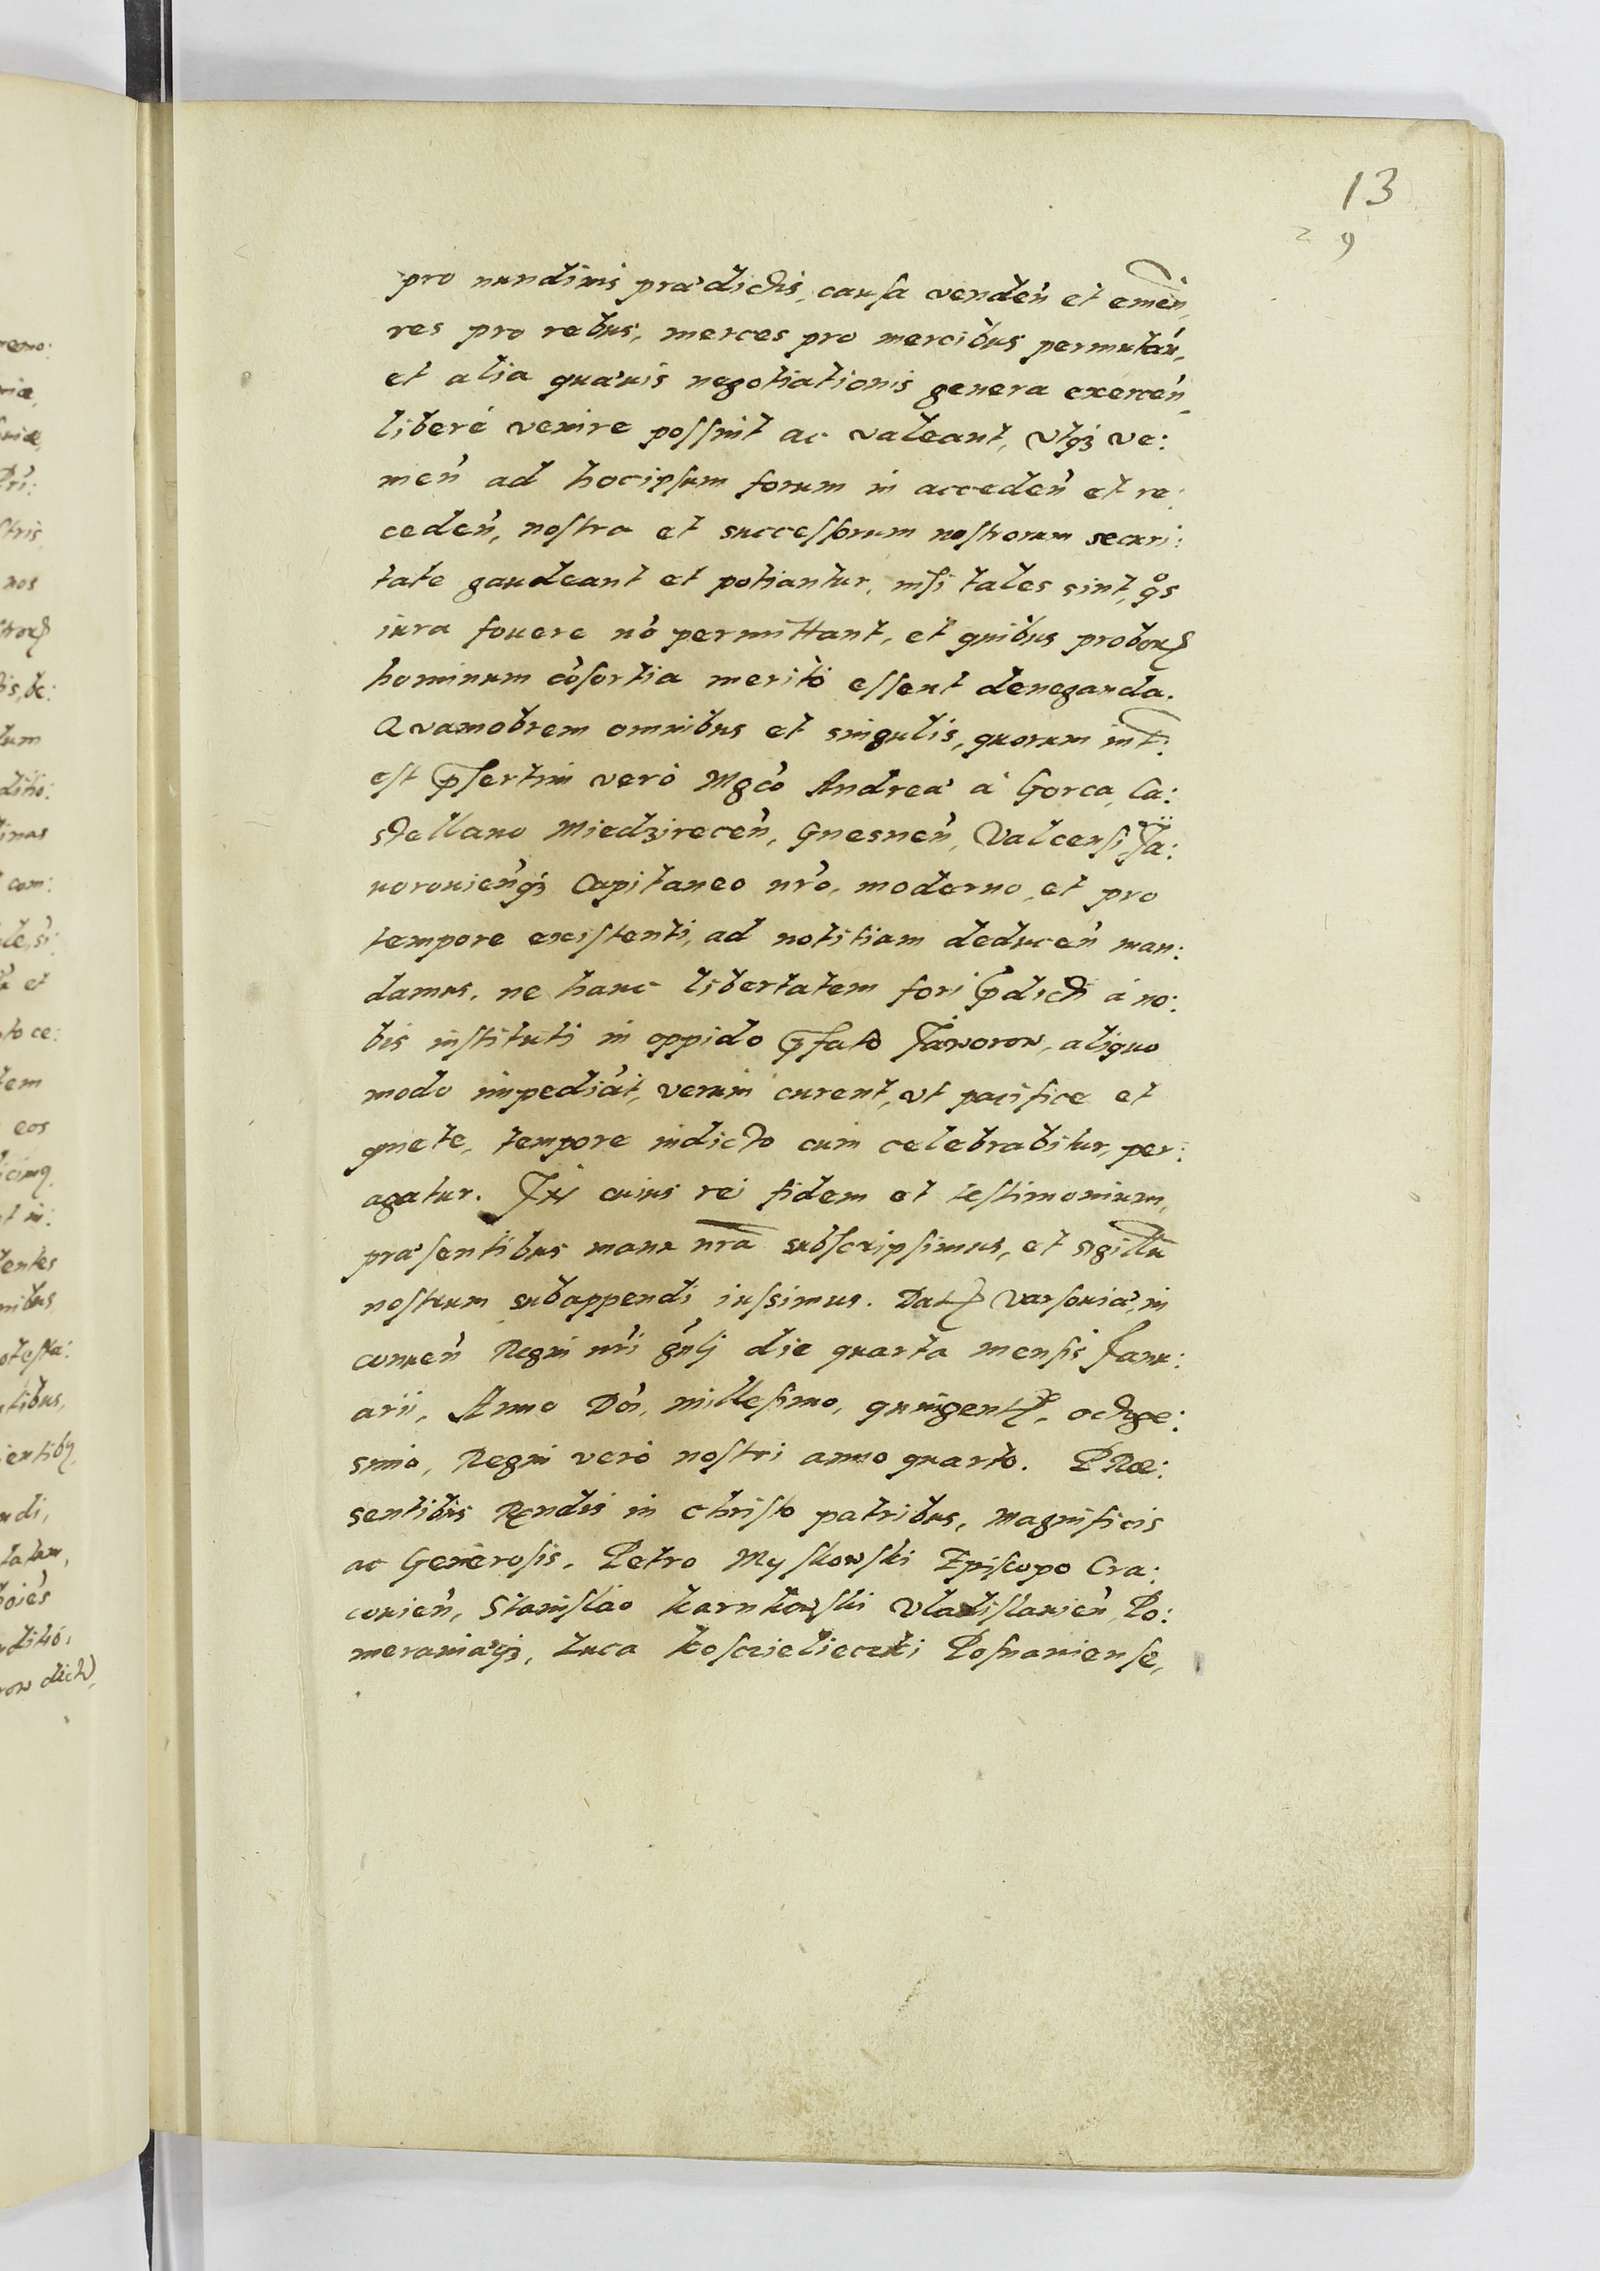 13
2 9
pro nundinis prædictis, causa venden̄ et emēn,
res pro rebus, merces pro mercibus permutan̄,
et alia quævis negotiationis genera exercen̄,
liberè venire possint ac valeant, vtq́ ve:
nien̄ ad hocipsum forum in acceden̄ et re:
ceden̄, nostra et successorum nostrorum securi:
tate gaudeant et potiantur, nisi tales sint, qͦs
iura fouere nō permittant, et quibus proboꝝ
hominum cōsortia meritò essent deneganda.
Qvamobrem omnibus et singulis, quorum int̄:
est p̄sertim verò Mgcō Andreæ à Gorca, Ca:
stellano Miedzirecen̄, Gnesnen̄, Valcensi, Ja:
uorouien̄q́ Capitaneo nr̄o, moderno, et pro
tempore existenti, ad notitiam deducen̄ man:
damus, ne hanc libertatem fori p̄dicti à no:
bis instituti in oppido p̄fato Jaworow, aliquo
modo impediāt, verum curent, vt pacifice et
quiete, tempore indicto cum celebrabitur, per:
agatur. In cuius rei fidem et testimonium,
præsentibus manu nr̄a subscripsimus, et sigillū
nostrum subappendi iussimus. Datꝝ Varsouiæ, in
conuen̄ Regni nr̄i gn̄li die quarta mensis Janu:
arii, Anno Dn̄i, millesimo, quingentꝰ, octuge:
simo, Regni verò nostri anno quarto. PRæ:
sentibus Rn̄dis in Christo patribus, Magnificis
ac Generosis, Petro Myskowski Episcopo Cra:
couien̄, Stanislao Karnkowski Vladislauien̄, Po:
meraniæq́, Luca Koscielieczki Posnaniense,